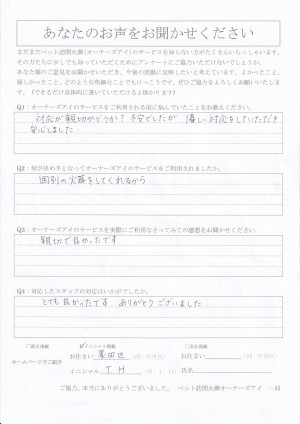 あなたのお声をお聞かせください
まだまだペット訪問火葬(オーナーズアイ)のサービスを知らない方がたくさんいらっしゃいます。
その方たちに少しでも知っていただくためにアンケートにご協力いただけないでしょうか。
あなた様のご意見をお聞かせいただき、今後の活動に反映したいと考えています。よかったこと、
嬉しかったこと、どのような些細なことでもけっこうです。ぜひご協力をよろしくお願いいたしま
す。(できるだけ具体的に書いていただけると助かります)
Q1:オーナーズアイのサービスをご利用される前に悩んでいたことをお教えください。
対応が親切かどうか？不安でしたが 優しい対応をしていただき
安心しました
Q2:何が決め手となってオーナーズアイのサービスをご利用されましたか。
個別の火葬をしてくれるから
Q3:オーナーズアイのサービスを実際にご利用なさってみての感想をお聞かせください。
親切で良かったです
Q4:対応したスタッフの対応はいかがでしたか。
とても良かったです ありがとうございました
□匿名掲載 ☑イニシャル掲載 □実名掲載
ホームページでご紹介
お住まい 墨田区 (例:中央区) お住まい (例:中央区)
イニシャル T.H (例:I.H) 氏名
ご協力、本当にありがとうございました。 ペット訪問火葬オーナーズアイ 一同